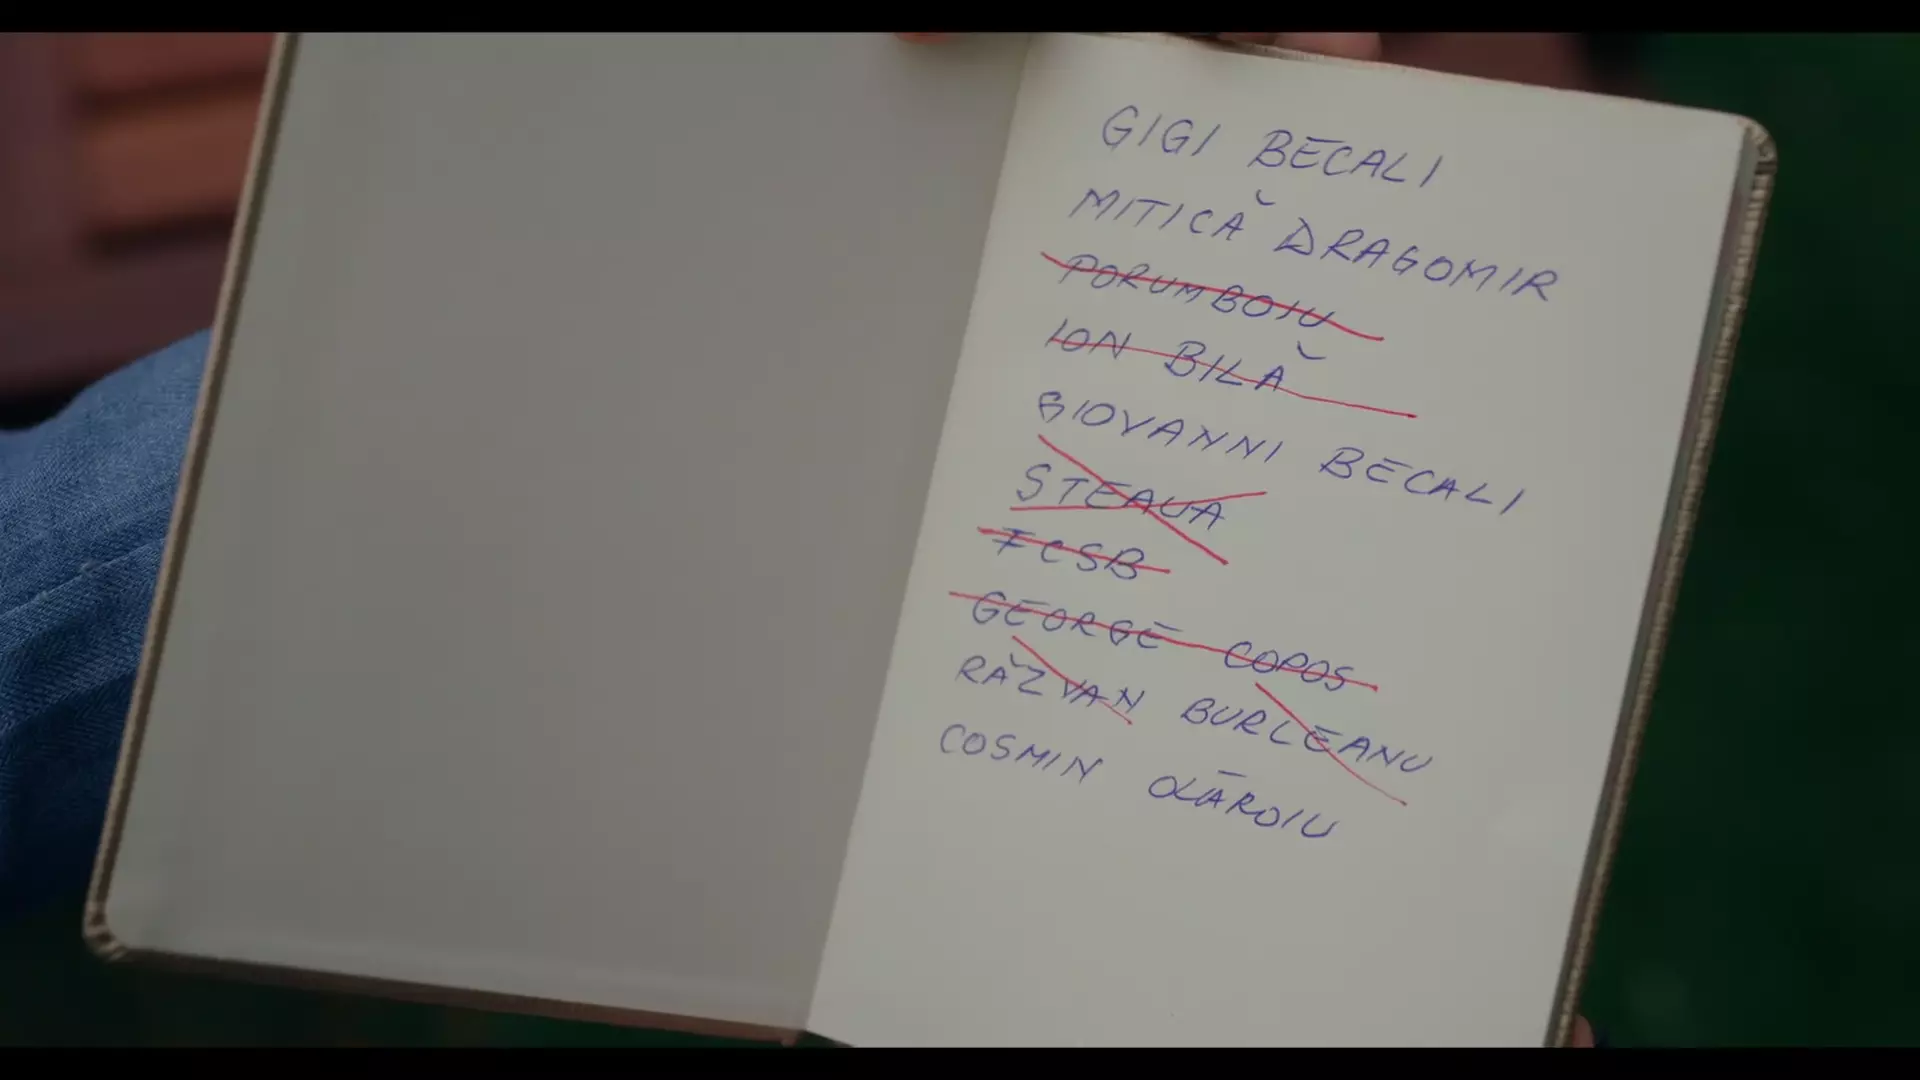 GIGI BECALI
MITICĂ DRAGOMIR
PORUMBOIU
ION BILĂ
GIOVANNI BECALI
STEAUA
FCSB
GEORGE COPOS
RĂZVAN BURLEANU
COSMIN OLĂROIU